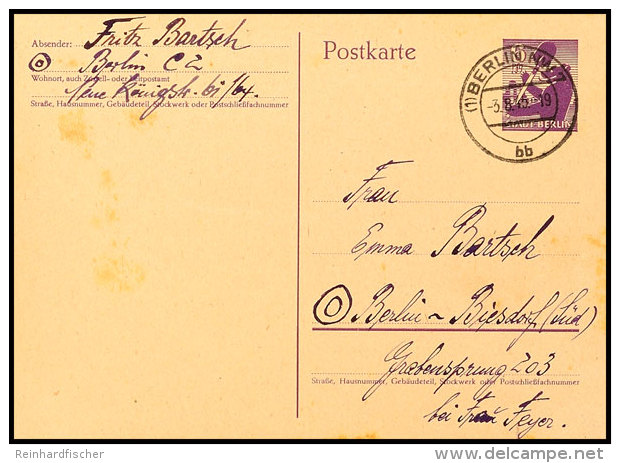 Absender: Fritz Bartsch
Berlin C 2
Wohnort, auch Zustell- oder Leitpostamt
Neue Königstr. 61/64
Straße, Hausnummer, Gebäudeteil, Stockwerk oder Postschließfachnummer
Postkarte
(1) BERLIN
-3.8. 19
bb
STADT BERLIN
Frau
Emma Bartsch
Berlin-Biesdorf (Süd)
Grabensprung 203
Straße, Hausnummer, Gebäudeteil, Stockwerk oder Postschließfachnummer
bei Frau Feyer.
Reinhardfischer
delcampe.net